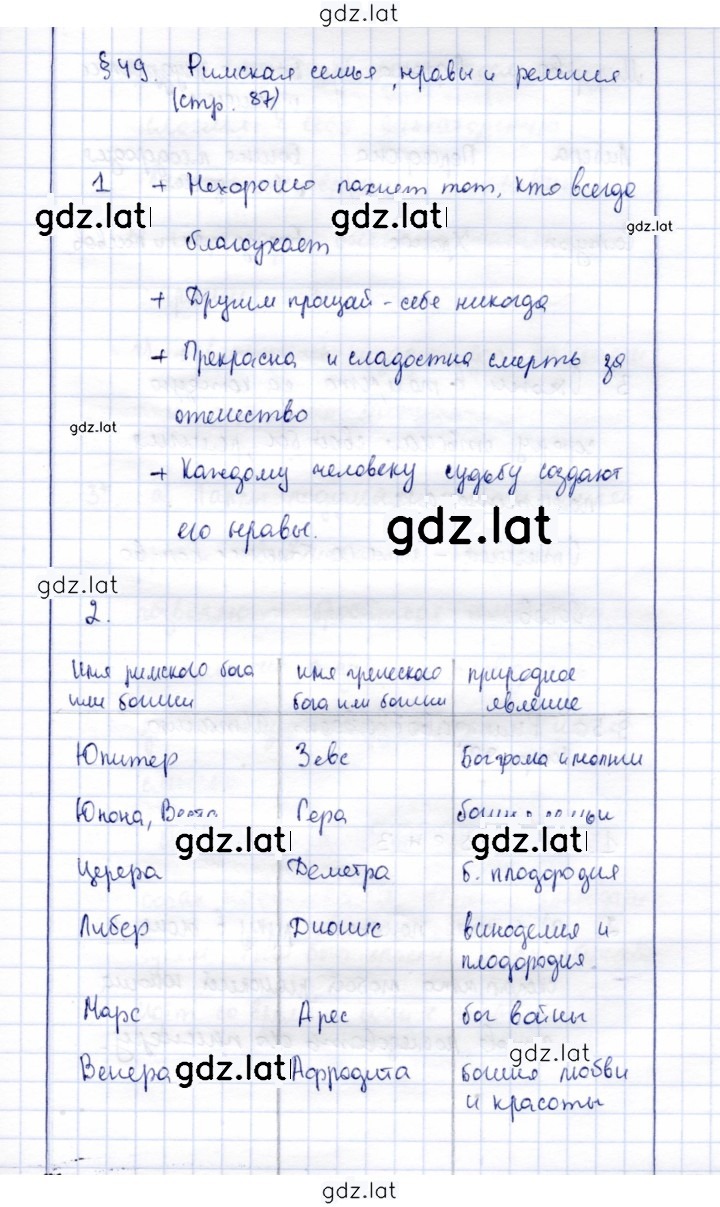 gdz.lat
§ 49. Римская семья, нравы и религия
(стр. 87)
1 + Нехорошо пахнет тот, кто всегда
gdz.lat gdz.lat gdz.lat
благоухает
+ Другим прощай - себе никогда
+ Прекрасна и сладостна смерть за
gdz.lat
отечество
+ Каждому человеку судьбу создают
его нравы.
gdz.lat
gdz.lat
2.
Имя римского бога имя греческого природное
или богини бога или богини явление
Юпитер Зевс Бог грома и молнии
Юнона, Гера
gdz.lat gdz.lat
Церера Деметра б. плодородия
Либер Дионис виноделия и
плодородия
Марс Арес бог войны
gdz.lat
Венера gdz.lat Афродита богиня любви
и красоты
gdz.lat